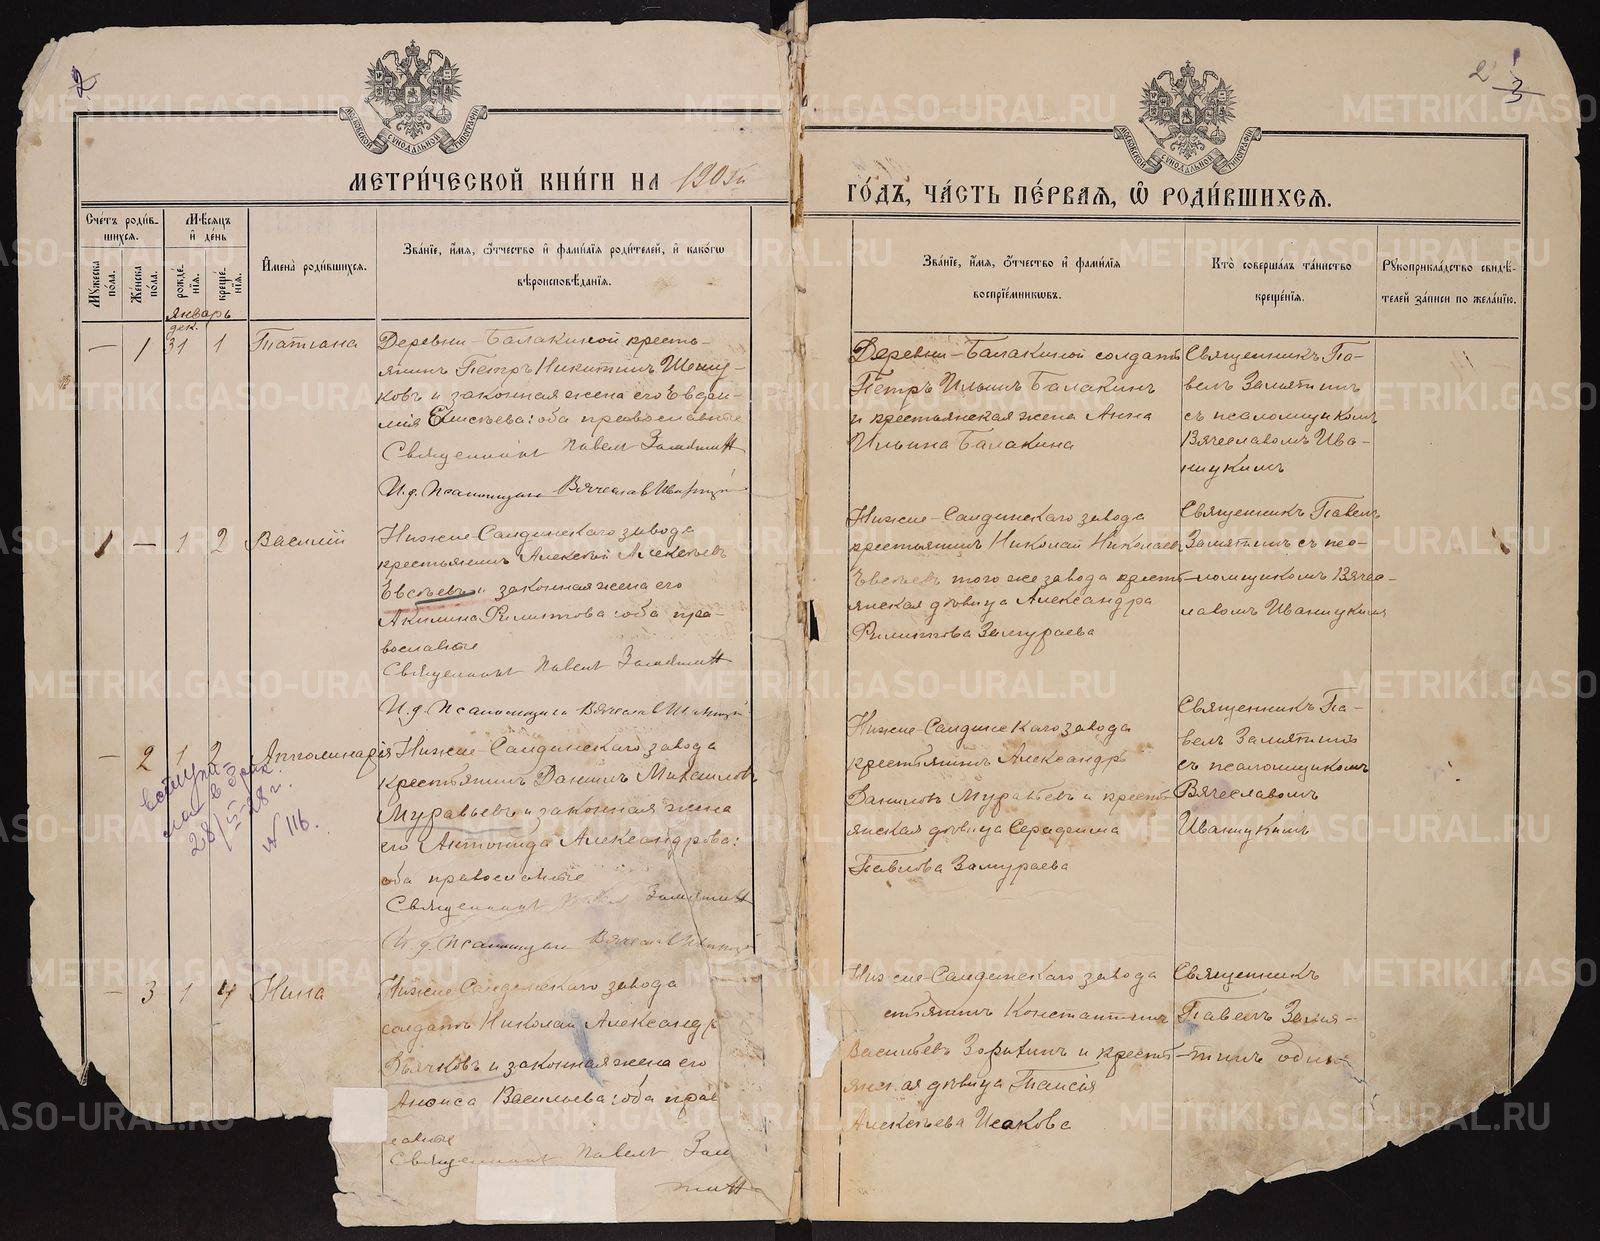 2
2 3
МОСКОВСКОЙ СѴНОДАЛЬНОЙ ТИПОГРАФІИ
МОСКОВСКОЙ СѴНОДАЛЬНОЙ ТИПОГРАФІИ
МЕТРИ́ЧЕСКОЙ КНИ́ГИ НА 1903й
ГО́ДЪ, ЧА́СТЬ ПЕ́РВАѦ, Ѽ РОДИ́ВШИХСѦ.
Сче́тъ роди́вшихсѧ.
Мꙋжеска по́ла.
Же́нска по́ла.
Мѣ́сѧцъ и҆ де́нь
рожде́нїѧ.
креще́нїѧ.
И҆мена̀ роди́вшихсѧ.
Зва́нїе, и҆́мѧ, ѻ҆́тчество и҆ фами́лїѧ роди́телей, и҆ како́гѡ
вѣроисповѣ́данїѧ.
Зва́нїе, и҆́мѧ, ѻ҆́тчество и҆ фами́лїѧ
воспрїе́мникѡвъ.
Кто̀ соверша́лъ та́инство
креще́нїѧ.
Рꙋкоприкла́дство свидѣ́-
телей за́писи по жела́нїю.
Январь
дек.
— 1 31 1 Татiана
Деревни-Балакиной кресть-
янинъ Петръ Никитинъ
ковъ и законная жена его Евдокi-
мiя Елисѣева: оба православные
Священникъ Павелъ Замятинъ
И.д. Псаломщика Вячеслав Иваницкiй
Деревни-Балакиной солдатъ
Петръ Ильинъ Балакинъ
и крестьянская жена Анна
Ильина Балакина
Священникъ Па-
велъ Замятинъ
съ псаломщикомъ
Вячеславомъ Ива-
ницкимъ
1 — 1 2 Василiй
Нижне-Салдинскаго завода
крестьянинъ Алексѣй Алексѣевъ
Евсѣевъ и законная жена его
Акилина Филиппова: оба пра-
вославные
Священникъ Павелъ Замятинъ
И.д. Псаломщика Вячеслав Иваницкiй
Нижне-Салдинскаго завода
крестьянинъ Николай Николаевъ
Евсѣевъ того же завода кресть-
янская дѣвица Александра
Филиппова Замураева
Священникъ Павелъ
Замятинъ съ пса-
ломщикомъ Вяче-
славомъ Иваницкимъ
— 2 1 2 Апполинарiя
вступи-
ла в брак
28/II 28 г.
№ 116.
Нижне-Салдинскаго завода
крестьянинъ Данiилъ Михаиловъ
Муравьевъ и законная жена
его Антонида Александрова:
оба православные
Священникъ Замятинъ
И.д. Псаломщика Вячеслав Иваницкiй
Нижне-Салдинскаго завода
крестьянинъ Александръ
Даниловъ Муравьевъ и кресть-
янская дѣвица Серафима
Павлова Замураева
Священникъ Па-
велъ Замятинъ
съ псаломщикомъ
Вячеславомъ
Иваницкимъ
— 3 1 4 Нина
Нижне-Салдинскаго завода
солдатъ Николай Александр
Зяачковъ и законная жена его
Аниса Васильева: оба прав
славные
Священникъ Павелъ Зам
тинъ
Нижне-Салдинскаго завода
стьянинъ Константинъ
Васильевъ Зоринъ и кресть-
янская дѣвица Таисiя
Алексѣева Исакова
Священникъ
Павелъ Замя-
тинъ один
METRIKI.GASO-URAL.RU